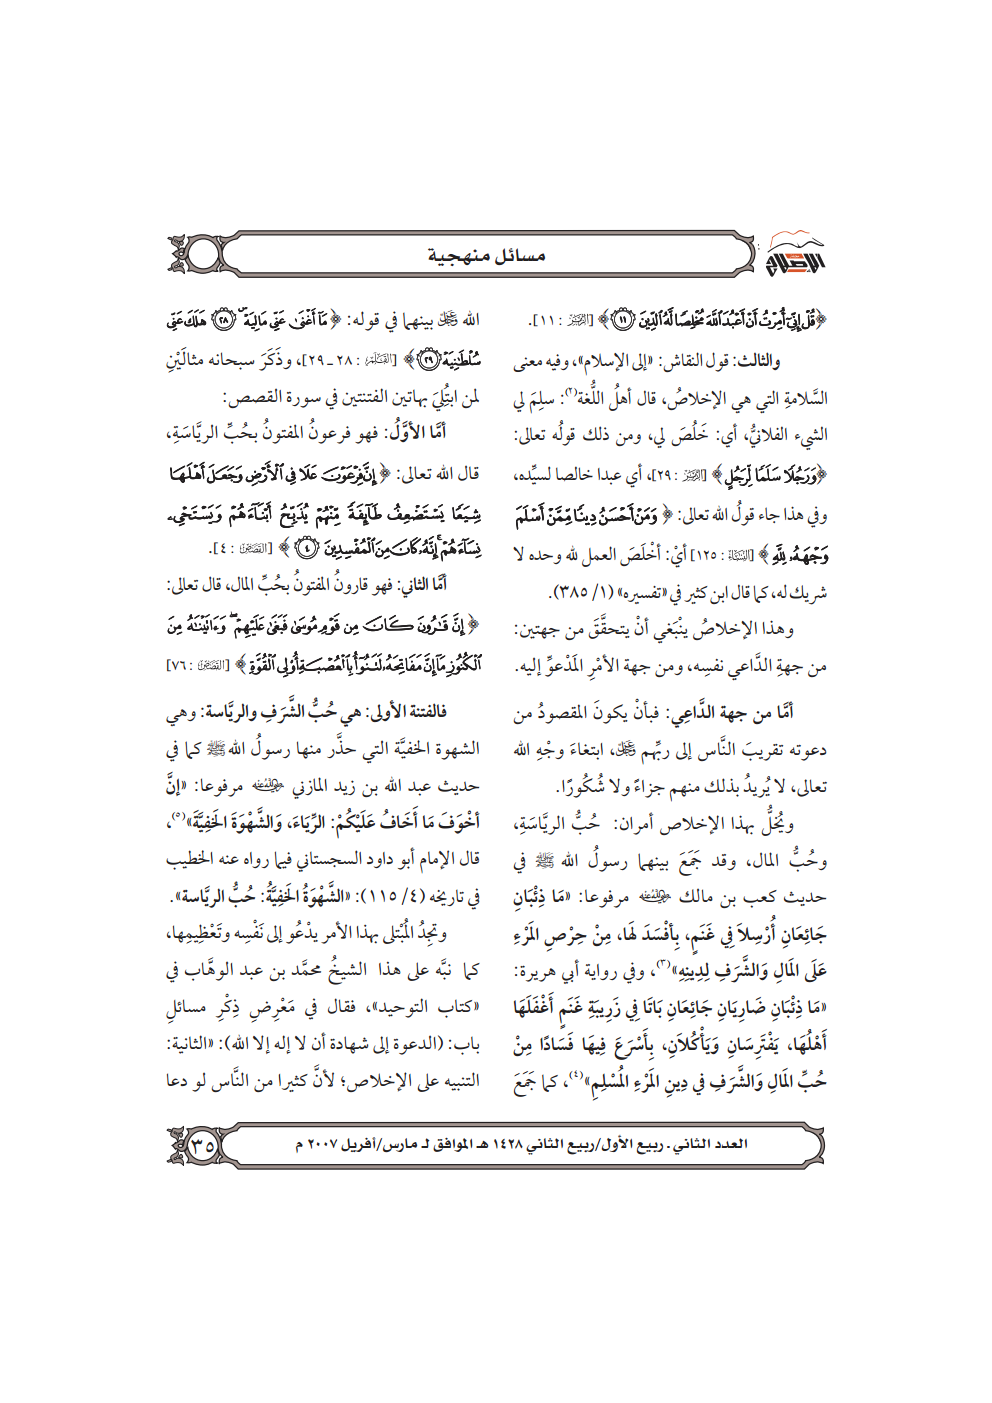 الإصلاح
مسائل منهجية
﴿قُلْ إِنِّي أُمِرْتُ أَنْ أَعْبُدَ اللَّهَ مُخْلِصًا لَّهُ الدِّينَ ۝١١﴾ [الزمر : ١١].
والثالث: قول النقاش: «إلى الإسلام»، وفيه معنى
السَّلامةِ التي هي الإخلاصُ، قال أهلُ اللُّغة(٢): سلِمَ لي
الشيء الفلانيُّ، أي: خَلُصَ لي، ومن ذلك قولُه تعالى:
﴿وَرَجُلًا سَلَمًا لِّرَجُلٍ﴾ [الزمر : ٢٩]، أي عبدا خالصا لسيِّده،
وفي هذا جاء قولُ الله تعالى: ﴿وَمَنْ أَحْسَنُ دِينًا مِّمَّنْ أَسْلَمَ
وَجْهَهُ لِلَّهِ﴾ [النساء : ١٢٥] أيْ: أخْلَصَ العمل لله وحده لا
شريك له، كما قال ابن كثير في «تفسيره» (١/ ٣٨٥).
وهذا الإخلاصُ ينْبَغي أنْ يتحقَّقَ من جهتين:
من جهةِ الدَّاعي نفسِه، ومن جهة الأمْرِ المَدْعوِّ إليه.
أمَّا من جهة الدَّاعِي: فبأنْ يكونَ المقصودُ من
دعوته تقريبَ النَّاس إلى ربِّهم ﷿، ابتغاءَ وجْهِ الله
تعالى، لا يُريدُ بذلك منهم جزاءً ولا شُكُورًا.
ويُخلُّ بهذا الإخلاص أمران: حُبُّ الريَّاسَةِ،
وحُبُّ المال، وقد جَمَعَ بينهما رسولُ الله ﷺ في
حديث كعب بن مالك ﵁ مرفوعا: «مَا ذِئْبَانِ
جَائِعَانِ أُرْسِلاَ فِي غَنَمٍ، بِأَفْسَدَ لَهَا، مِنْ حِرْصِ المَرْءِ
عَلَى المَالِ وَالشَّرَفِ لِدِينِهِ»(٣)، وفي رواية أبي هريرة:
«مَا ذِئْبَانِ ضَارِيَانِ جَائِعَانِ بَاتَا فِي زَرِيبَةِ غَنَمٍ أَغْفَلَهَا
أَهْلُهَا، يَفْتَرِسَانِ وَيَأْكُلاَنِ، بِأَسْرَعَ فِيهَا فَسَادًا مِنْ
حُبِّ المَالِ وَالشَّرَفِ فِي دِينِ المَرْءِ المُسْلِمِ»(٤)، كما جَمَعَ
الله ﷿ بينهما في قوله: ﴿مَا أَغْنَى عَنِّي مَالِيَهْ ۝٢٨ هَلَكَ عَنِّي
سُلْطَانِيَهْ ۝٢٩﴾ [القلم : ٢٨ ـ ٢٩]، وذَكَرَ سبحانه مثالَيْنِ
لمن ابتُلِيَ بهاتين الفتنتين في سورة القصص:
أمَّا الأوَّلُ: فهو فرعونُ المفتونُ بحُبِّ الريَّاسَةِ،
قال الله تعالى: ﴿إِنَّ فِرْعَوْنَ عَلَا فِي الْأَرْضِ وَجَعَلَ أَهْلَهَا
شِيَعًا يَسْتَضْعِفُ طَائِفَةً مِّنْهُمْ يُذَبِّحُ أَبْنَاءَهُمْ وَيَسْتَحْيِي
نِسَاءَهُمْ إِنَّهُ كَانَ مِنَ الْمُفْسِدِينَ ۝٤﴾ [القصص : ٤].
أمَّا الثاني: فهو قارونُ المفتونُ بحُبِّ المال، قال تعالى:
﴿إِنَّ قَارُونَ كَانَ مِن قَوْمِ مُوسَى فَبَغَى عَلَيْهِمْ وَءَاتَيْنَاهُ مِنَ
الْكُنُوزِ مَا إِنَّ مَفَاتِحَهُ لَتَنُوأُ بِالْعُصْبَةِ أُوْلِي الْقُوَّةِ﴾ [القصص : ٧٦]
فالفتنة الأولى: هي حُبُّ الشَّرَفِ والريَّاسة: وهي
الشهوة الخفيَّة التي حذَّر منها رسولُ الله ﷺ كما في
حديث عبد الله بن زيد المازني ﵁ مرفوعا: «إنَّ
أخْوَفَ مَا أَخَافُ عَلَيْكُمْ: الرِّيَاءَ، وَالشَّهْوَةَ الخَفِيَّةَ»(٥)،
قال الإمام أبو داود السجستاني فيما رواه عنه الخطيب
في تاريخه (٤/ ١١٥): «الشَّهْوَةُ الخَفِيَّةُ: حُبُّ الريَّاسة».
وتجِدُ المُبْتلى بهذا الأمر يدْعُو إلى نَفْسِه وتَعْظِيمِها،
كما نبَّه على هذا الشيخُ محمَّد بن عبد الوهَّاب في
«كتاب التوحيد»، فقال في مَعْرِضِ ذِكْرِ مسائلِ
باب: (الدعوة إلى شهادة أن لا إله إلا الله): «الثانية:
التنبيه على الإخلاص؛ لأنَّ كثيرا من النَّاس لو دعا
العدد الثاني ـ ربيع الأول/ربيع الثاني ١٤٢٨ هـ الموافق لـ مارس/أفريل ٢٠٠٧ م
٣٥